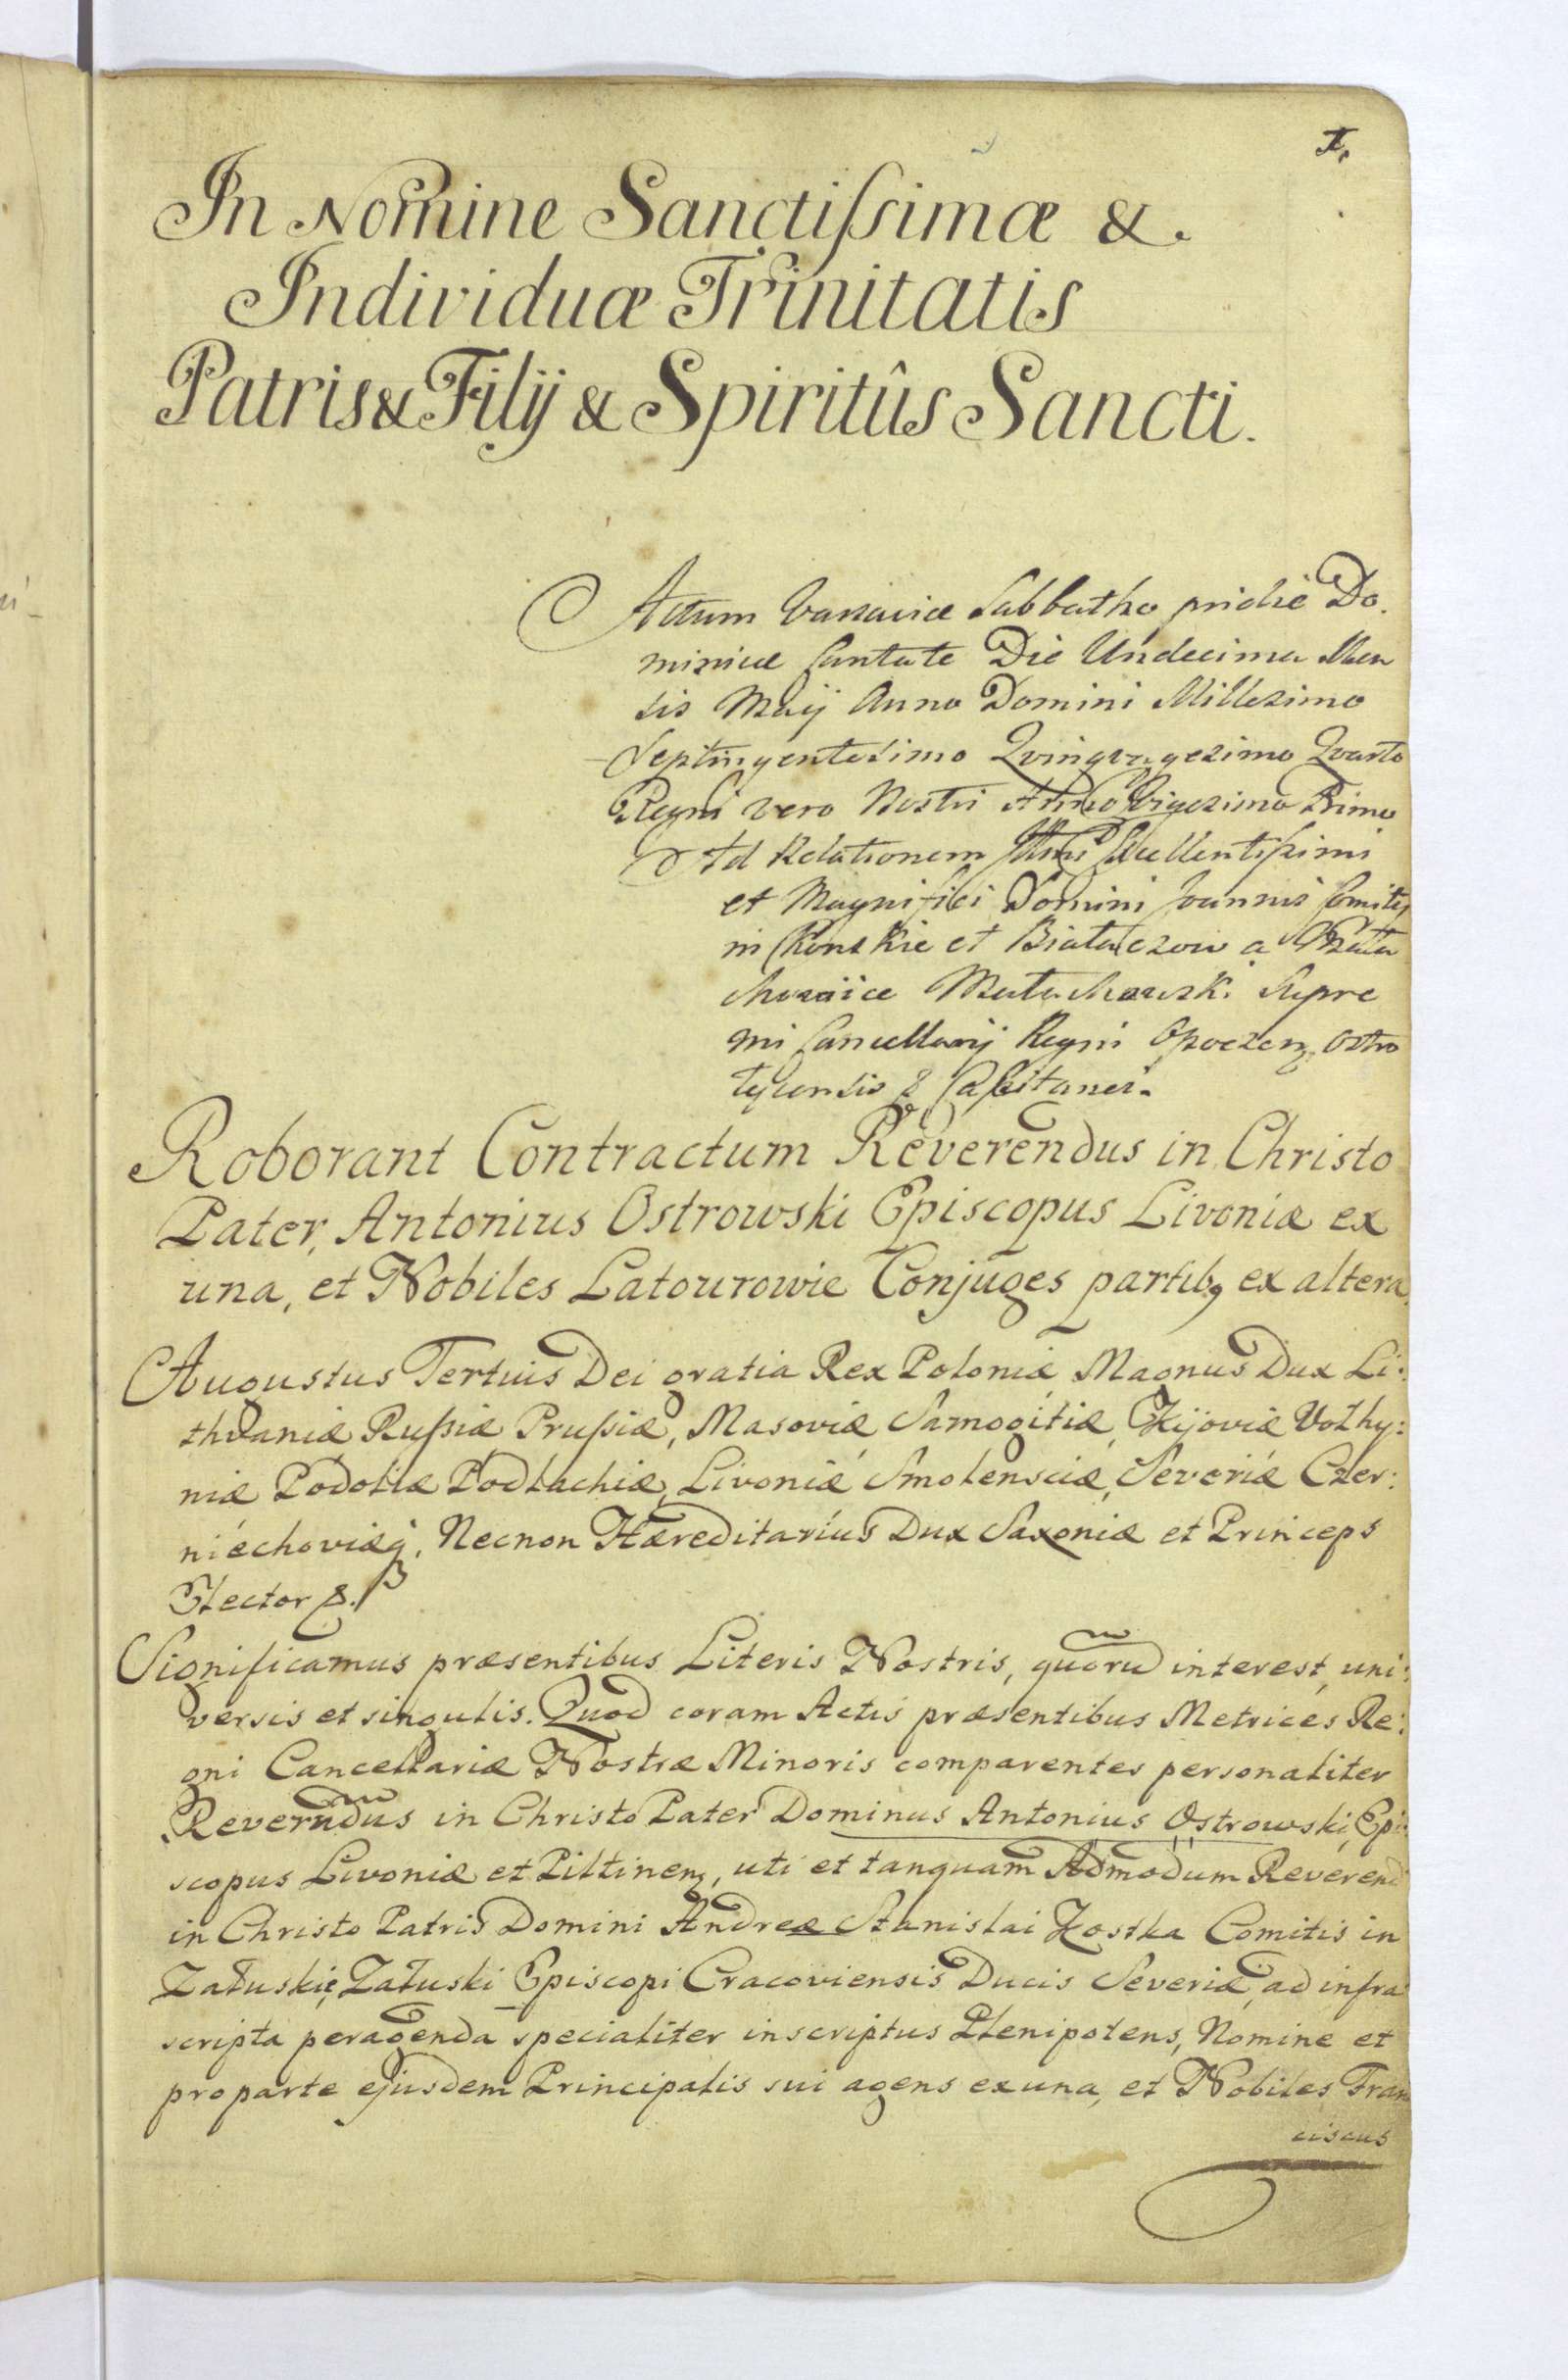 1.
In Nomine Sanctissimæ &.
Individuæ Trinitatis
Patris & Filij & Spiritûs Sancti.
Actum Varsaviæ Sabbatho pridie Do.
minicæ Cantate Die Undecima Men
sis Maij Anno Domini Millesimo
Septingentesimo Qvinqvagesimo Qvarto
Regni vero Nostri Anno Vigesimo Primo
Ad Relationem Illmi Excellentissimi
et Magnifici Domini Joannis Comitis
in Konskie et Białaczow a Mała
chowice Małachowski Supre
mi Cancellarij Regni Opoczen, Ostro
lęcensis & Capitanei.
Roborant Contractum Reverendus in Christo
Pater, Antonius Ostrowski Episcopus Livoniæ ex
una, et Nobiles Latourowie Conjuges partibꝫ ex altera.
Augustus Tertius Dei gratia Rex Poloniæ Magnus Dux Li:
thvaniæ Russiæ Prussiæ, Masoviæ Samogitiæ, Kijoviæ Vołhy:
niæ Podoliæ Podlachiæ, Livoniæ Smolensciæ, Severiæ Czer:
niechoviæq, Necnon Hæreditarius Dux Saxoniæ et Princeps
Elector &.
Significamus præsentibus Literis Nostris, quorũ interest, uni:
versis et singulis. Quod coram Actis præsentibus Metrices Re:
gni Cancellariæ Nostræ Minoris comparentes personaliter
Reverñdus in Christo Pater Dominus Antonius Ostrowski, Epi:
scopus Livoniæ et Piltinenꝫ, uti et tanquam Admodum Reverend
in Christo Patris Domini Andreæ Stanislai Kostka Comitis in
Załuskie, Załuski Episcopi Cracoviensis Ducis Severiæ, ad infra
scripta peragenda specialiter inscriptus Plenipotens, Nomine et
pro parte ejusdem Principalis sui agens ex una, et Nobiles Fran
ciscus